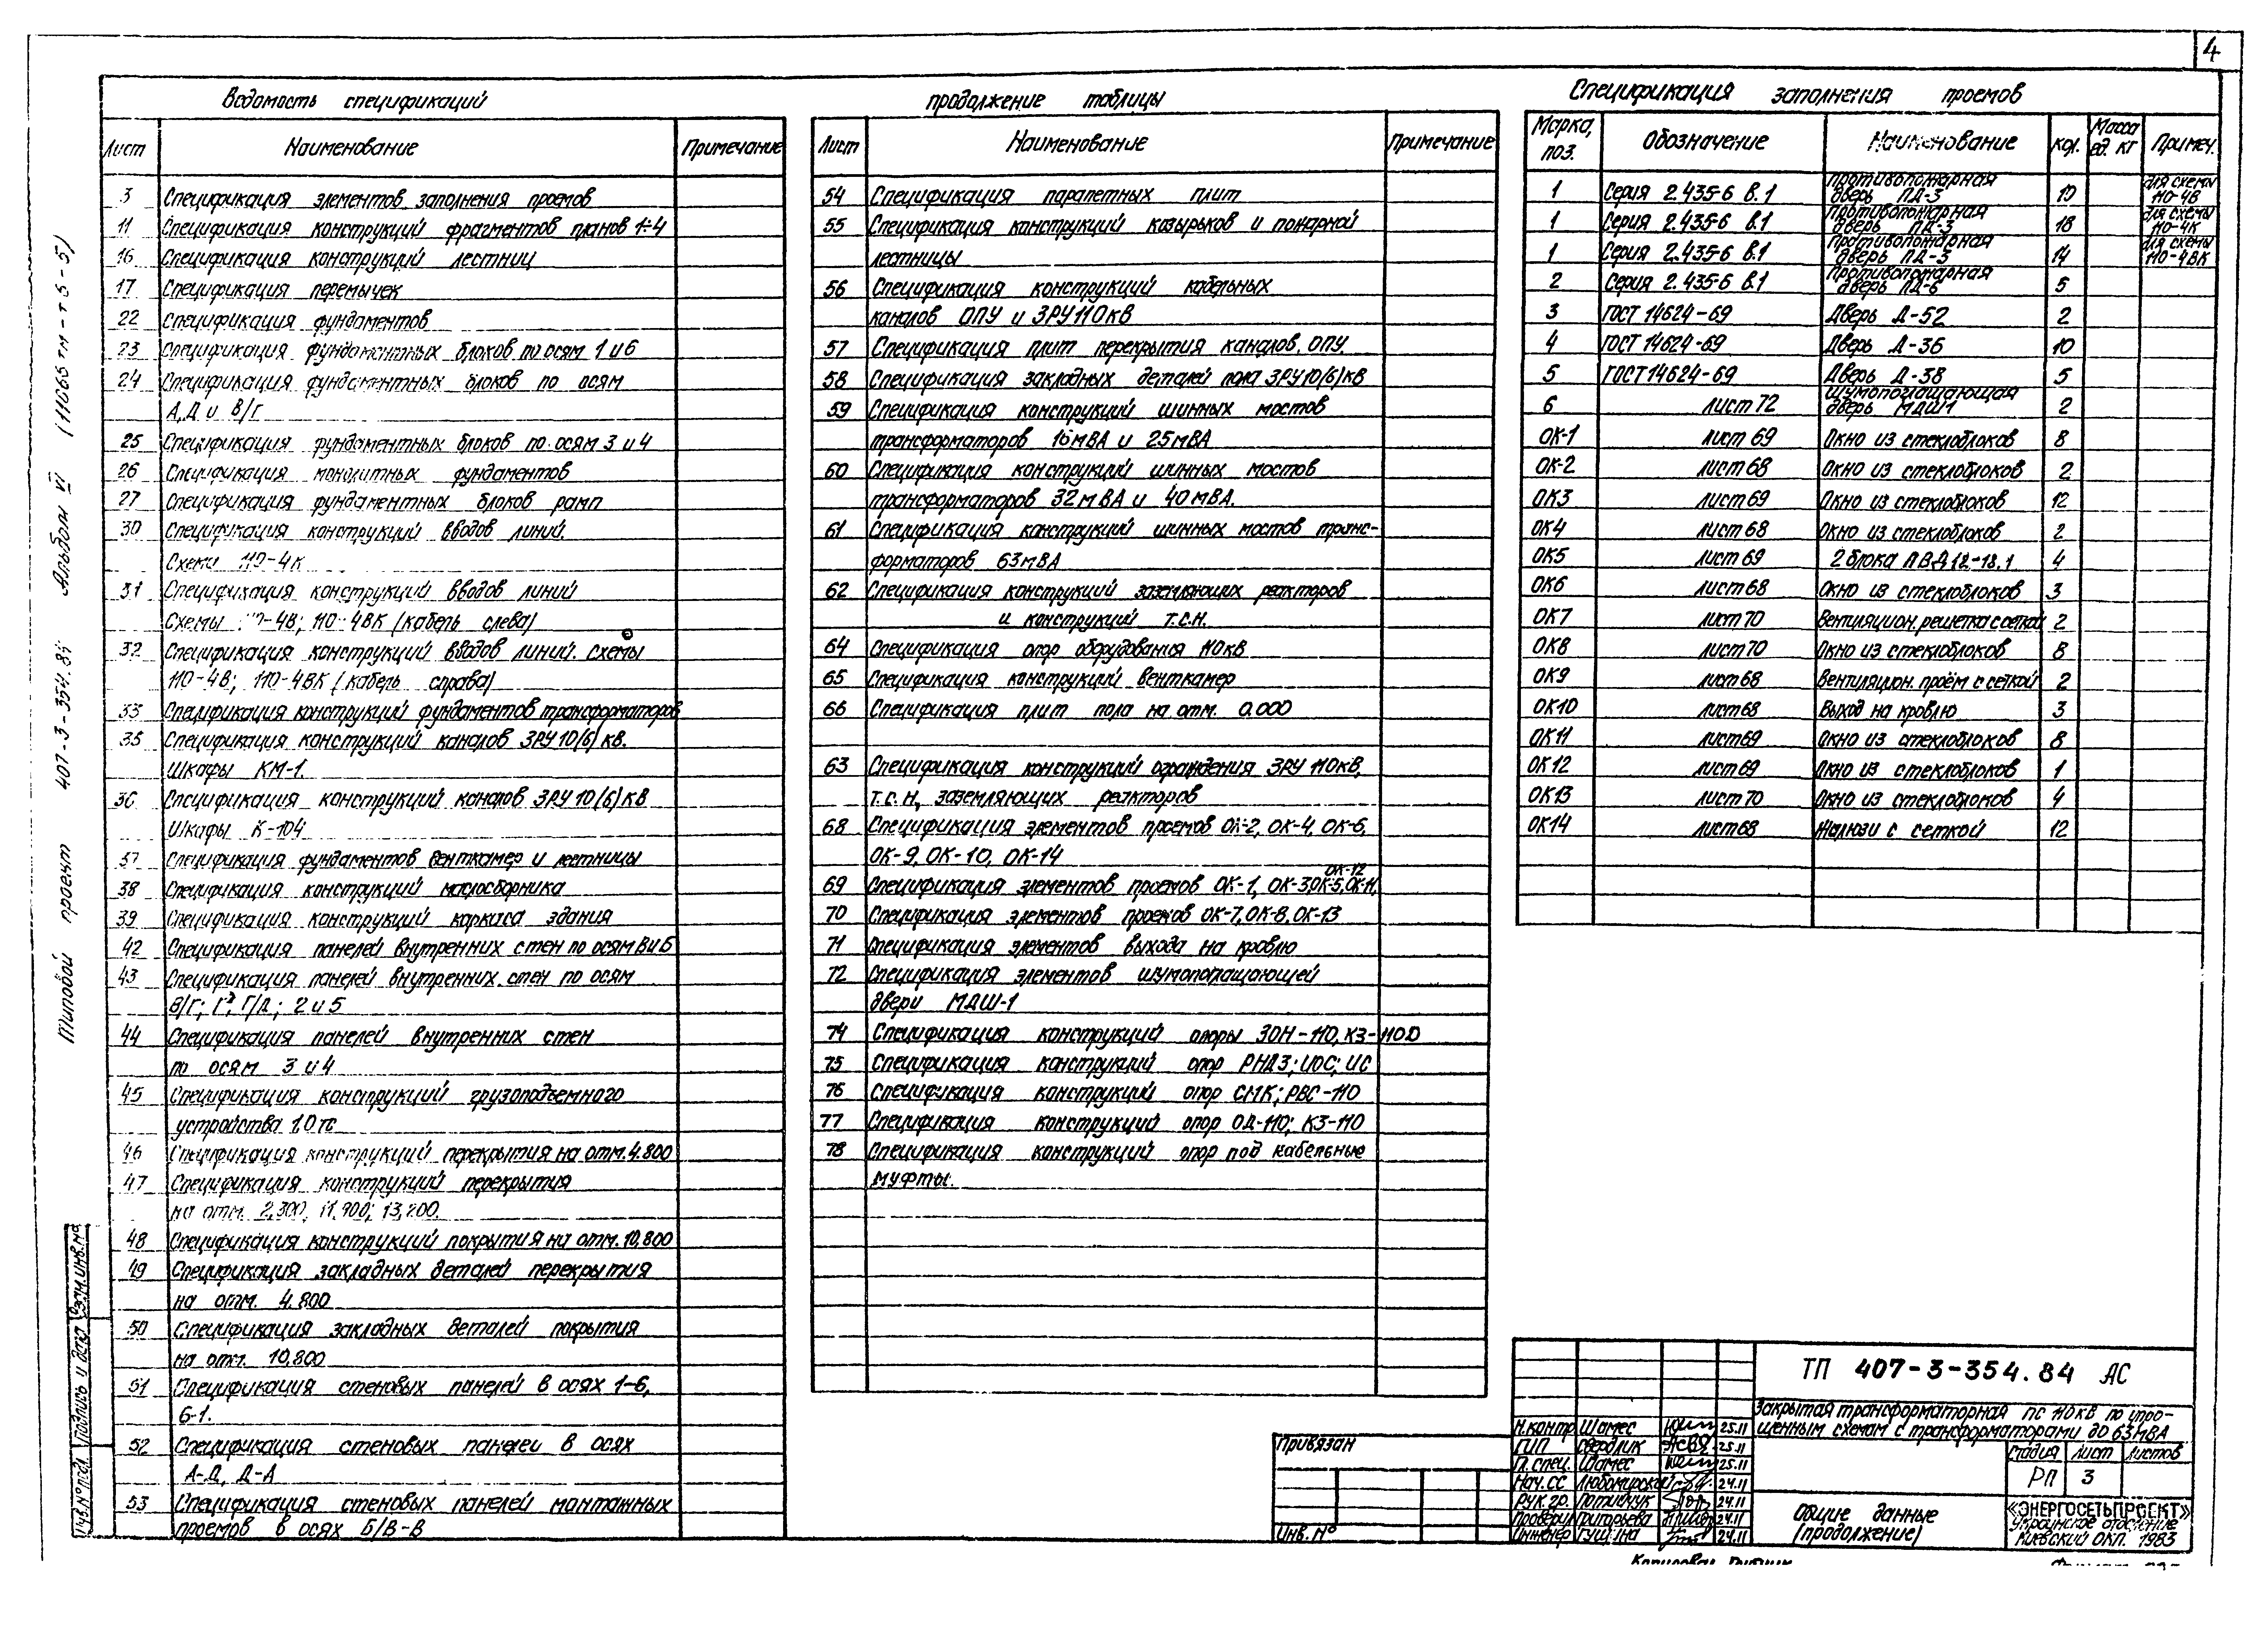 4
Ведомость спецификаций
Лист Наименование Примечание
3 Спецификация элементов заполнения проемов
11 Спецификация конструкций фрагментов планов 1÷4
16 Спецификация конструкций лестниц
17 Спецификация перемычек
22 Спецификация фундаментов
23 Спецификация фундаментных блоков по осям 1 и 6
24 Спецификация фундаментных блоков по осям
А, Д и В/Г
25 Спецификация фундаментных блоков по осям 3 и 4
26 Спецификация монолитных фундаментов
27 Спецификация фундаментных блоков рамп
30 Спецификация конструкций вводов линий.
Схема 110-4к
31 Спецификация конструкций вводов линий
Схемы 110-4В; 110-4ВК (кабель слева)
32 Спецификация конструкций вводов линий. схемы
110-4В; 110-4ВК (кабель справа)
33 Спецификация конструкций фундаментов трансформаторов
35 Спецификация конструкций каналов ЗРУ 10(6) кВ.
Шкафы КМ-1.
36 Спецификация конструкций каналов ЗРУ 10(6) кВ
Шкафы К-104
37 Спецификация фундаментов венткамер и лестницы
38 Спецификация конструкций маслосборника
39 Спецификация конструкций каркаса здания
42 Спецификация панелей внутренних стен по осям В и Б
43 Спецификация панелей внутренних стен по осям
В/Г; Г; Г/Д; 2 и 5
44 Спецификация панелей внутренних стен
по осям 3 и 4
45 Спецификация конструкций грузоподъемного
устройства 1,0 тс
46 Спецификация конструкций перекрытия на отм. 4.800
47 Спецификация конструкций перекрытия
на отм. 2,300,
48 Спецификация конструкций покрытия на отм. 10,800
49 Спецификация закладных деталей перекрытия
на отм. 4.800
50 Спецификация закладных деталей покрытия
на отм. 10,800
51 Спецификация стеновых панелей в осях 1-6,
6-1.
52 Спецификация стеновых панелей в осях
А-Д, Д-А
53 Спецификация стеновых панелей монтажных
проемов в осях Б/В-В
продолжение таблицы
Лист Наименование Примечание
54 Спецификация парапетных плит
55 Спецификация конструкций козырьков и пожарной
лестницы
56 Спецификация конструкций кабельных
каналов ОПУ и ЗРУ 110 кВ
57 Спецификация плит перекрытия каналов. ОПУ.
58 Спецификация закладных деталей пола ЗРУ 10(6) кВ
59 Спецификация конструкций шинных мостов
трансформаторов 16 мВА и 25 мВА
60 Спецификация конструкций шинных мостов
трансформаторов 32 м ВА и 40 мВА.
61 Спецификация конструкций шинных мостов транс-
форматоров 63 мВА
62 Спецификация конструкций заземляющих реакторов
и конструкций т.с.н.
64 Спецификация опор оборудования 110 кВ
65 Спецификация конструкций венткамер
66 Спецификация плит пола на отм. 0.000
63 Спецификация конструкций ограждения ЗРУ 110 кВ,
т.с.н., заземляющих реакторов
68 Спецификация элементов проемов ОК-2, ОК-4, ОК-6,
ОК-9, ОК-10, ОК-14
ОК-12
69 Спецификация элементов проемов ОК-1, ОК-3, ОК-5, ОК-11,
70 Спецификация элементов проемов ОК-7, ОК-8, ОК-13
71 Спецификация элементов выхода на кровлю
72 Спецификация элементов шумопоглащающей
двери МДШ-1
74 Спецификация конструкций опоры ЗОН-110, КЗ-110
75 Спецификация конструкций опор РНДЗ; ИОС; ИС
76 Спецификация конструкций опор СМК; РВС-110
77 Спецификация конструкций опор ОД-110; КЗ-110
78 Спецификация конструкций опор под кабельные
муфты.
Спецификация заполнения проемов
Марка, поз. Обозначение Наименование Кол. Масса ед. кг Примеч.
1 Серия 2.435-6 В.1 Противопожарная дверь ПД-3 19 для схемы 110-4В
1 Серия 2.435-6 В.1 Противопожарная дверь ПД-3 18 для схемы 110-4К
1 Серия 2.435-6 В.1 Противопожарная дверь ПД-3 14 для схемы 110-4ВК
2 Серия 2.435-6 В.1 Противопожарная дверь ПД-6 5
3 ГОСТ 14624-69 Дверь Д-52 2
4 ГОСТ 14624-69 Дверь Д-36 10
5 ГОСТ 14624-69 Дверь Д-38 5
6 Лист 72 Шумопоглащающая дверь МДШ1 2
ОК-1 Лист 69 Окно из стеклоблоков 8
ОК-2 Лист 68 Окно из стеклоблоков 2
ОК3 Лист 69 Окно из стеклоблоков 12
ОК4 Лист 68 Окно из стеклоблоков 2
ОК5 Лист 69 2 блока ПВД 12-18.1 4
ОК6 Лист 68 Окно из стеклоблоков 3
ОК7 Лист 70 Вентиляцион. решетка с сеткой 2
ОК8 Лист 70 Окно из стеклоблоков 8
ОК9 Лист 68 Вентиляцион. проём с сеткой 2
ОК10 Лист 68 Выход на кровлю 3
ОК11 Лист 69 Окно из стеклоблоков 8
ОК12 Лист 69 Окно из стеклоблоков 1
ОК13 Лист 70 Окно из стеклоблоков 4
ОК14 Лист 68 Жалюзи с сеткой 12
Типовой проект 407-3-354.84 Альбом VI (11665 тм-т 6-5)
Инв. № подл. Подпись и дата Взам. инв. №
Привязан
Инв. №
ТП 407-3-354.84 АС
Закрытая трансформаторная ПС 110 кВ по упро-
щенным схемам с трансформаторами до 63 МВА
Н.контр. Шамес 25.11
ГИП Свердлик 25.11
Гл. спец. Шамес 25.11
Нач. СС Любомирский 24.11
Рук. гр. 24.11
Проверил Григорьева 24.11
Инженер Гущина 24.11
Стадия Лист Листов
РП 3
Общие данные
(продолжение)
«ЭНЕРГОСЕТЬПРОЕКТ»
Украинское отделение
Киевский ОКП. 1983
Копировал